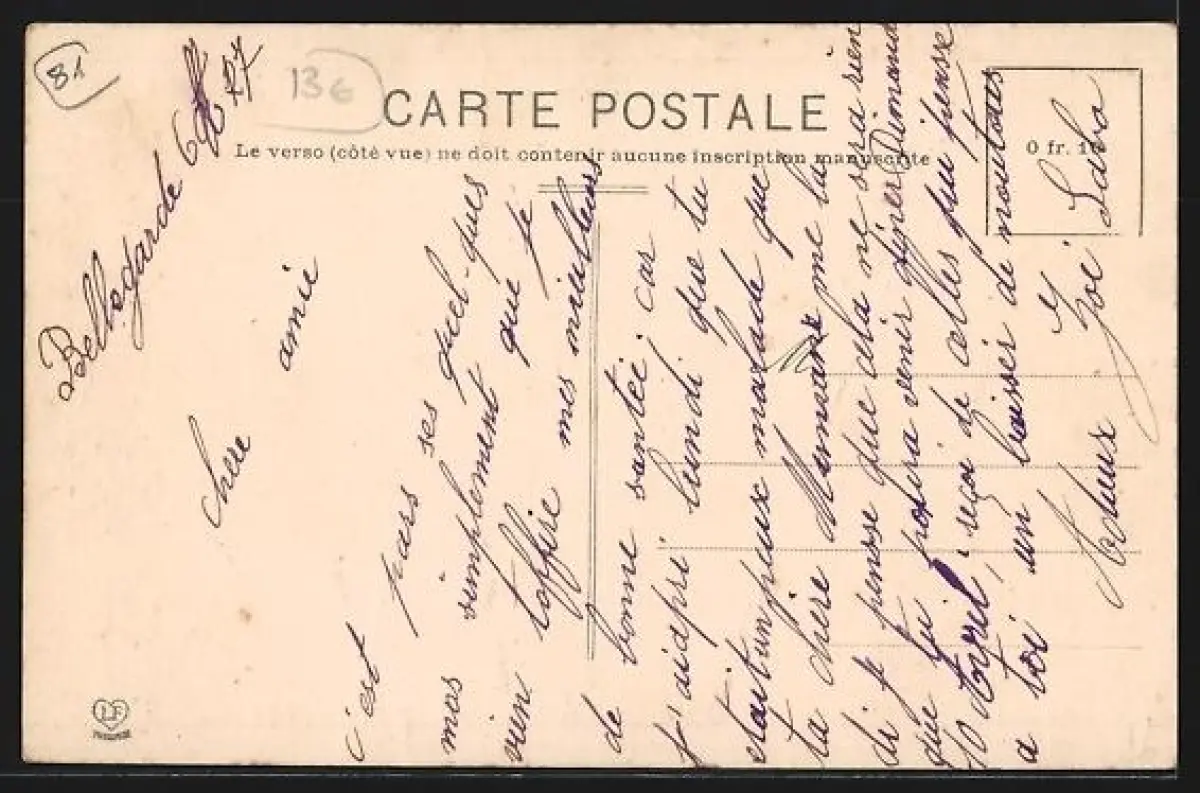 81
13 €
CARTE POSTALE
Le verso (côté vue) ne doit contenir aucune inscription manuscrite
0 fr. 10
Bellegarde 6 27
chere amie
c'est pars ses quel-ques
mos simplement que je
vien toffrire mes meilleurs
de bonne santéé car
j'aidpri lundi que tu
etait un peux malade que
ta chère Memane me la
di je pensse que cela ne sera rien
que tu poura venir diner Dimand
10 Avril, reçoi de celles qui pensse
a toi un baisser de moutous
Zoé
LF